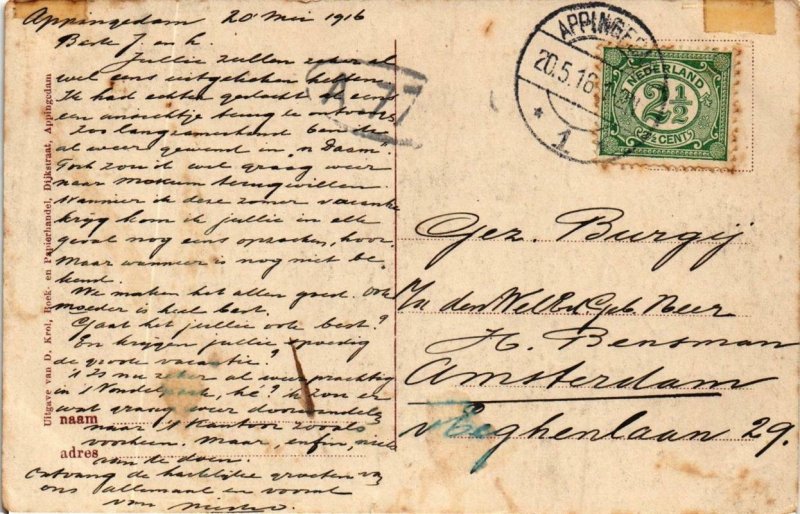 Appingedam 20 Mei 1916
Beste J. en h.
Jullie zullen zeker al
wel eens uitgekeken hebben.
Ik had echter gedacht te eerst
een ansichtje terug te ontvangen
Zoo langzamerhand ben ik
al weer gewend in 'n Daam.
Toch zou ik wel graag weer
naar Mokum terug willen.
Wanneer ik deze zomer vacantie
krijg kom ik jullie in elk
geval nog eens opzoeken, hoor.
Maar wanneer is nog niet be-
kend.
We maken het allen goed. Ook
moeder is heel best.
Gaat het jullie ook best?
En krijgen jullie spoedig
de groote vacantie?
't Is nu zeker al weer prachtig
in 't Vondelpark, hè? Ik zou er
wat graag weer doorwandelen
naar 't Kantoor zooals
voorheen. Maar, enfin, niets
aan te doen.
Ontvang de hartelijke groeten van
ons allemaal en vooral
van
naam
adres
Uitgave van D. Krol, Boek- en Papierhandel, Dijkstraat, Appingedam
A 77
APPINGE
20.5.16
1
NEDERLAND
2½
2½ CENT
Gez. Burgij
p/a den WelEd. Geb. Heer
H. Bensman
Amsterdam
v. Eeghenlaan 29.